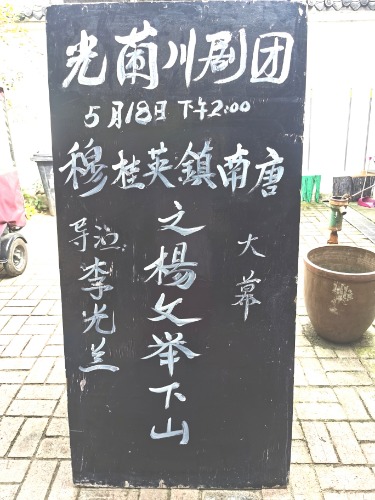 光蘭川剧团
5月18日下午2:00
穆桂英鎮南唐
之楊文举下山
大幕
导演李光兰